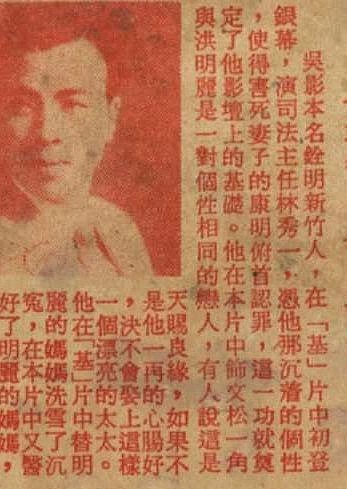 吳影本名銓明新竹人，在「基」片中初登
銀幕，演司法主任林秀一，憑他那沉着的個性
，使得害死妻子的康明俯首認罪，這一功就奠
定了他影壇上的基礎。他在本片中飾文松一角
與洪明麗是一對個性相同的戀人，有人說這是
天賜良緣，如果不
是他一再的心腸好
，決不會娶上這樣
一個漂亮的太太。
他在「基」片中替明
麗的媽媽洗雪了沉
冤，在本片中又醫
好了明麗的媽媽，